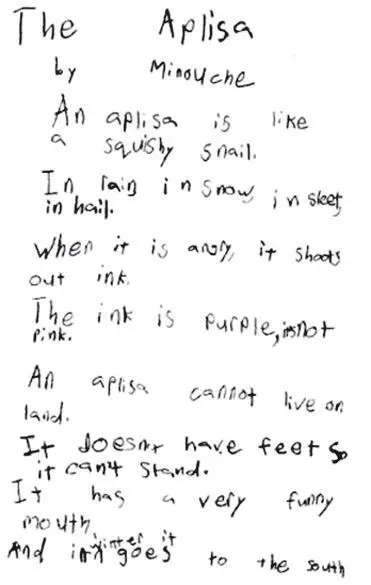 The Aplisa
by Minouche
An aplisa is like
a squishy snail.
In rain in snow, in sleet,
in hail.
When it is angry, it shoots
out ink.
The ink is purple, its not
pink.
An aplisa cannot live on
land.
It doesnt have feet so
it can't stand.
It has a very funny
mouth,
And in winter it goes to the south